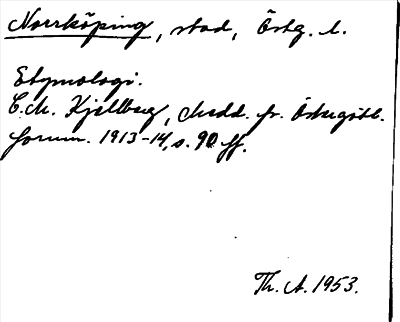 Norrköping, stad, Östg. l.
Etymologi.
C. M. Kjellberg, Medd. fr. Östergötl.
fornm. 1913-14, s. 90 ff.
Th. A. 1953.